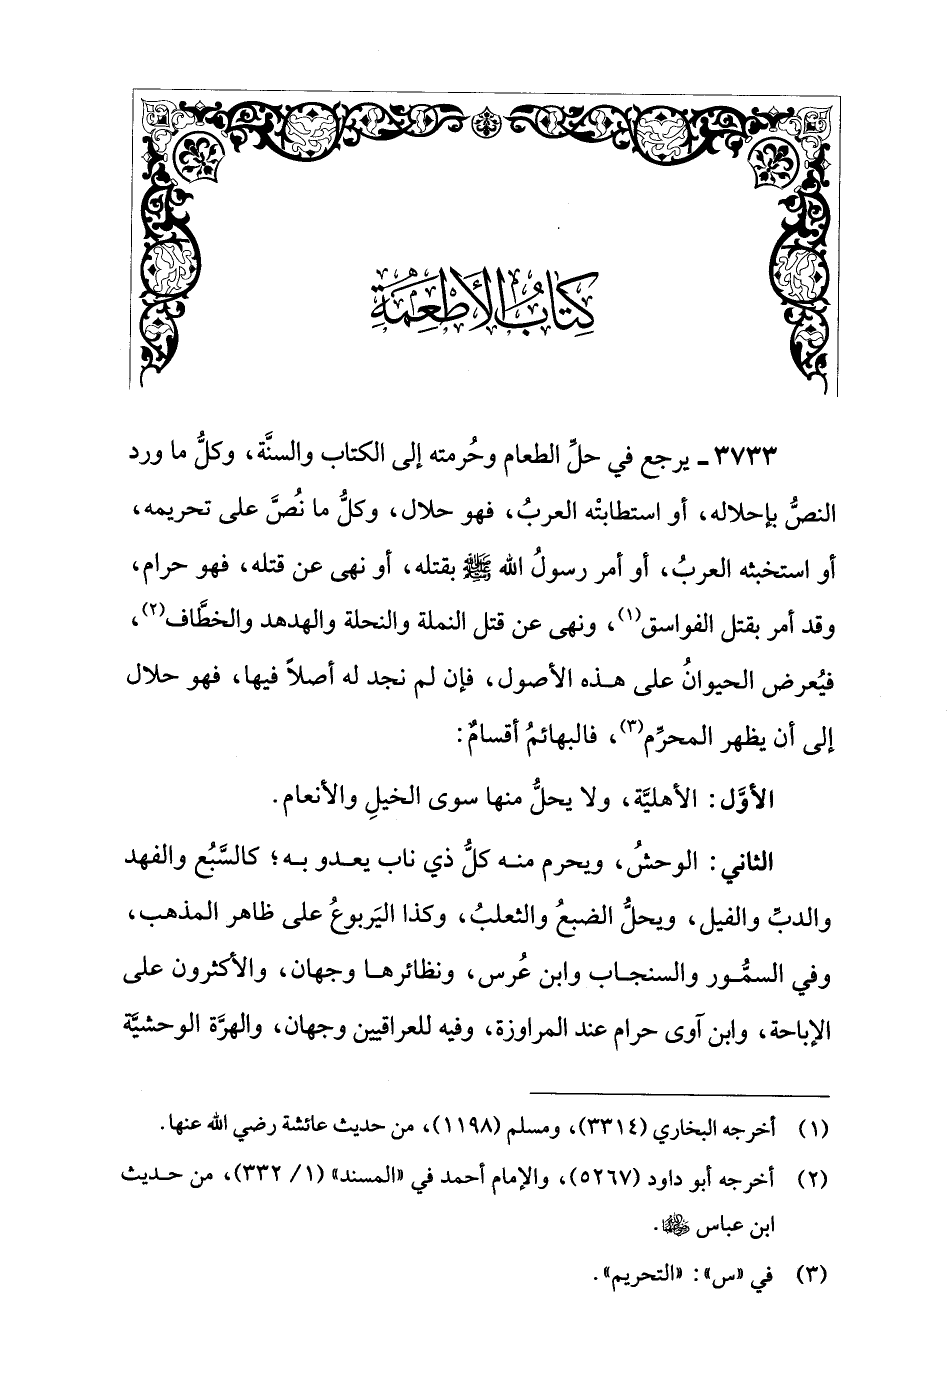 كِتَابُ الأَطْعِمَةِ
٣٧٣٣ ـ يرجع في حلِّ الطعام وحُرمته إلى الكتاب والسنَّة، وكلُّ ما ورد
النصُّ بإحلاله، أو استطابتْه العربُ، فهو حلال، وكلُّ ما نُصَّ على تحريمه،
أو استخبثه العربُ، أو أمر رسولُ الله ﷺ بقتله، أو نهى عن قتله، فهو حرام،
وقد أمر بقتل الفواسق(١)، ونهى عن قتل النملة والنحلة والهدهد والخطَّاف(٢)،
فيُعرض الحيوانُ على هذه الأصول، فإن لم نجد له أصلاً فيها، فهو حلال
إلى أن يظهر المحرِّم(٣)، فالبهائمُ أقسامٌ:
الأوَّل: الأهليَّة، ولا يحلُّ منها سوى الخيلِ والأنعام.
الثاني: الوحشُ، ويحرم منه كلُّ ذي ناب يعدو به؛ كالسَّبُع والفهد
والدبِّ والفيل، ويحلُّ الضبعُ والثعلبُ، وكذا اليَربوعُ على ظاهر المذهب،
وفي السمُّور والسنجاب وابن عُرس، ونظائرها وجهان، والأكثرون على
الإباحة، وابن آوى حرام عند المراوزة، وفيه للعراقيين وجهان، والهرَّة الوحشيَّة
(١) أخرجه البخاري (٣٣١٤)، ومسلم (١١٩٨)، من حديث عائشة رضي الله عنها.
(٢) أخرجه أبو داود (٥٢٦٧)، والإمام أحمد في «المسند» (١/ ٣٣٢)، من حديث
ابن عباس رضي الله عنهما.
(٣) في «س»: «التحريم».